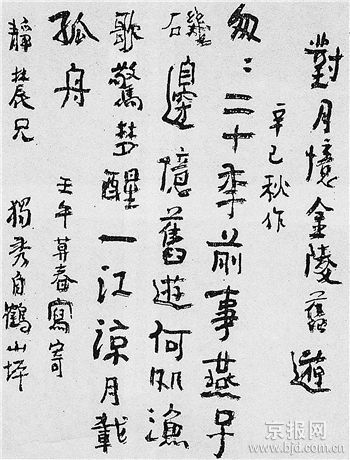 對月憶金陵舊遊
辛巳秋作
匆〻二十秊前事燕子
磯邊憶舊遊何処漁
歌驚梦醒一江涼月載
孤舟 壬午暮春寫寄
靜農兄 獨秀自鶴山坪
京报网
www.bjd.com.cn